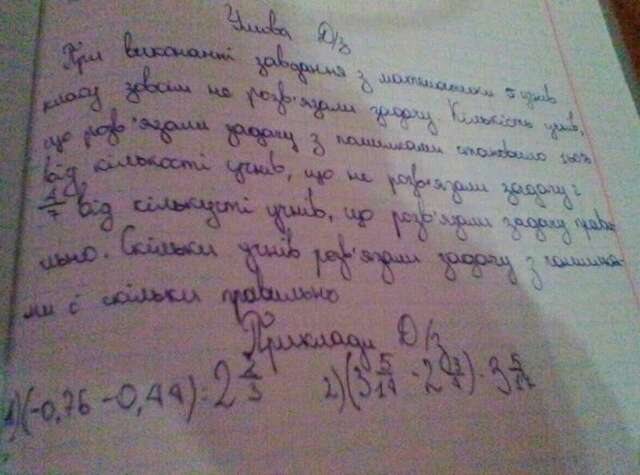 Умова Д/з
При виконанні завдання з математики 5 учнів
класу зовсім не розв'язали задачу. Кількість учнів,
що розв'язали задачу з помилками становило
від кількості учнів, що не розв'язали задачу і
від кількусті учнів, що розв'язали задачу прави-
льно. Скільки учнів розв'язали задачу з помилка-
ми і скільки правильно
Приклади Д/з
1)(-0,76 -0,44) : 2 2/3 2)(3 5/14 - 2